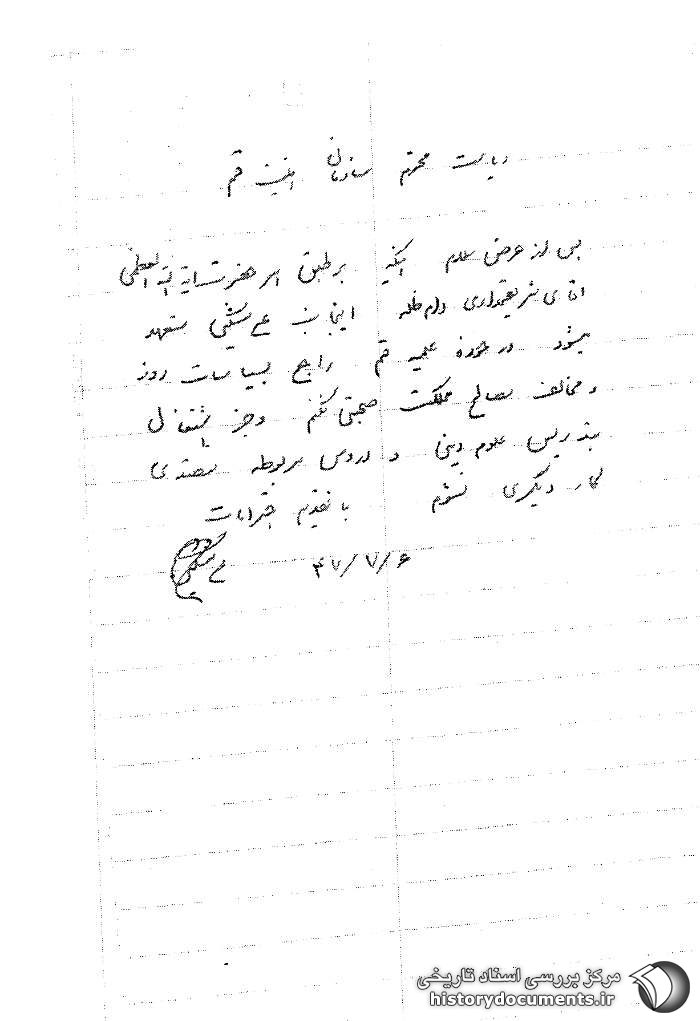 ریاست محترم سازمان امنیت قم
پس از عرض سلام اینکه بر طبق امر حضرت آیة الله العظمی
آقای شریعتمداری دام ظله اینجانب ع مشکینی متعهد
میشود در حوزه علمیه قم راجع بسیاسات روز
و مخالف مصالح مملکت صحبتی نکنم و جز اشتغال
بتدریس علوم دینی و دروس مربوطه متصدی
کار دیگری نشوم با تقدیم احترامات
۴۷/۷/۶
ع مشکینی
مرکز بررسی اسناد تاریخی
historydocuments.ir